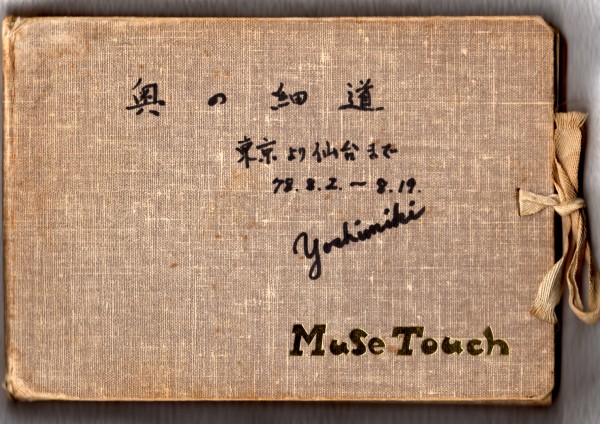 奥の細道
東京より仙台まで
78.8.2.～8.19.
Yoshimiki
MuSe Touch